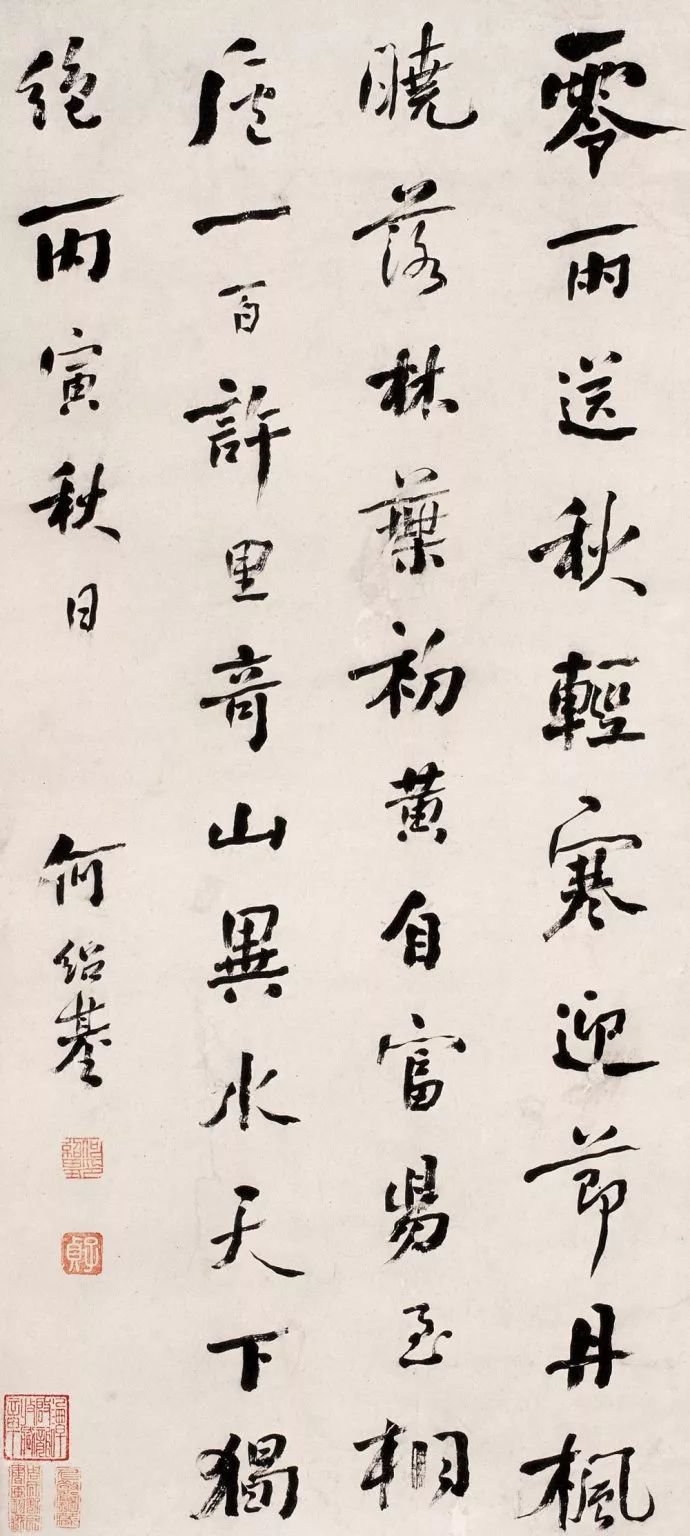 零雨送秋輕寒迎節丹楓
曉落林葉初黃自富昜至桐
廬一百許里奇山異水天下獨
絕丙寅秋日
何紹基
子貞